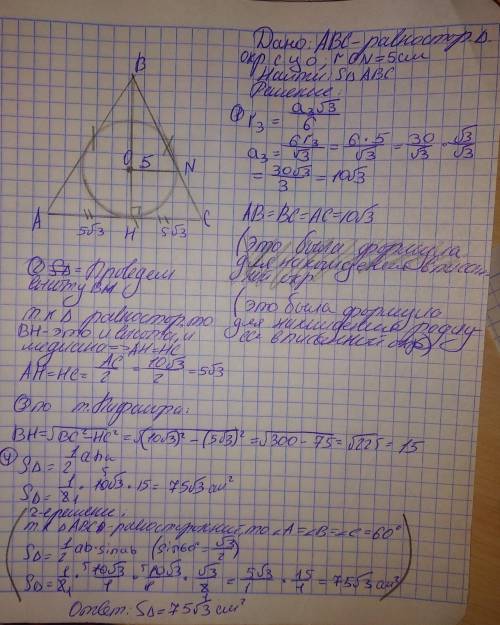 Дано: АВС - равностор. Δ
окр. с ц. О, r ON = 5см
Найти: SΔABC
Решение:
① r₃ = a₃√3/6
a₃ = 6r₃/√3 = 6·5/√3 = 30/√3 · √3/√3
= 30√3/3 = 10√3
AB=BC=AC=10√3
(это была формула
(это была формула
для нахождения радиу
са вписанной окр)
B
O 5 N
A H C
5√3 5√3
② Проведем
высоту BH
т.к Δ равностор, то
BH - это и высота, и
медиана => AH=HC
AH=HC= AC/2 = 10√3/2 = 5√3
③ по т. Пифагора:
BH=√BC²-HC² = √(10√3)²-(5√3)² = √300-75 = √225 = 15
④ SΔ = 1/2 aha
SΔ = 1/2 · 10√3 · 15 = 75√3 см²
2-решение:
т.к ΔABC - равносторонний, то ∠A=∠B=∠C=60°
SΔ = 1/2 ab·sinab (sin60° = √3/2)
SΔ = 1/2 · 10√3/1 · 10√3/1 · √3/2 = 5√3/1 · 15/1 = 75√3 см²
Ответ: SΔ = 75√3 см²